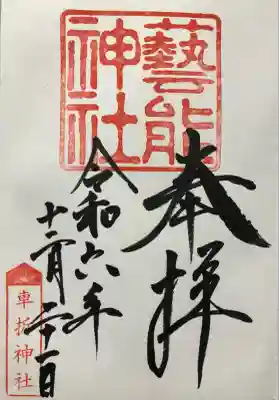 奉拝
藝能神社
令和六年
十二月二十一日
車折神社